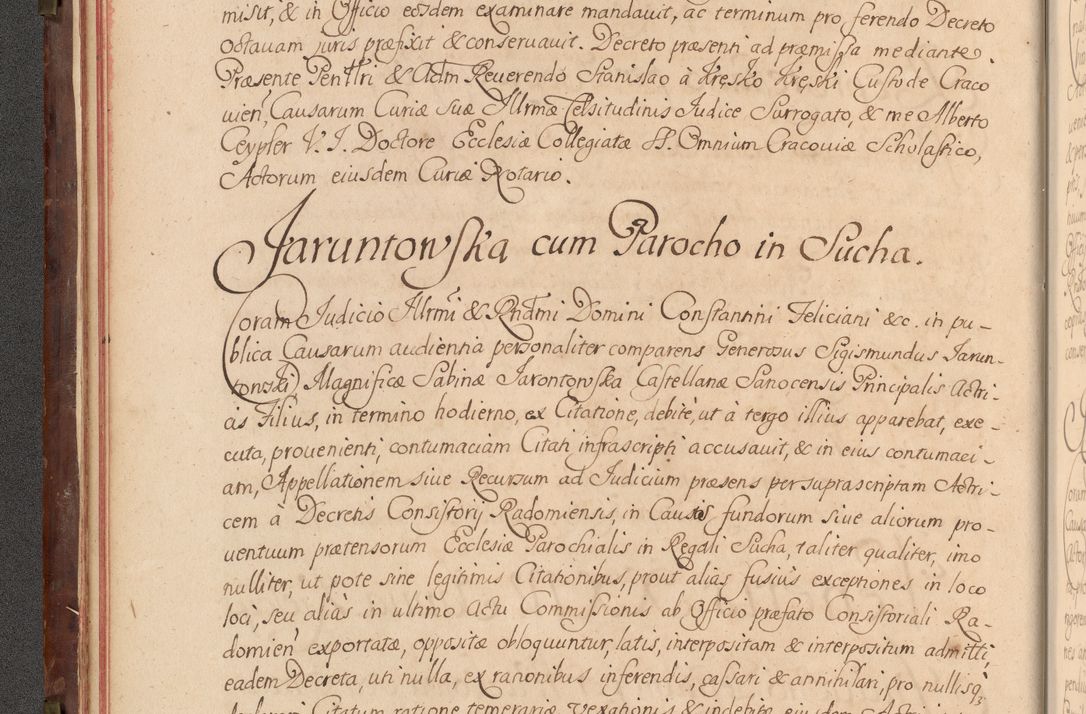 misit, & in Officio eosdem examinare mandauit, ac terminum pro ferendo Decreto
octauam juris præfixit & conseruauit. Decreto præsenti ad præmissa mediante.
Præsente Penttri & Adm Reuerendo Stanislao à Kręsko Kręski Custode Craco
uien, Causarum Curiæ suæ Illrmæ Celsitudinis Judice Surrogato, & me Alberto
Ceypler V. J. Doctore Ecclesiæ Collegiatæ SS. Omnium Cracouiæ Scholastico,
Actorum eiusdem Curiæ Notario.
Jaruntowska cum Parocho in Sucha.
Coram Judicio Illrmi & Rndmi Domini Constantini Feliciani &c. in pu-
blica Causarum audientia personaliter comparens Generosus Sigismundus Jarun-
towski Magnificæ Sabinæ Jarontowska Castellanæ Sanocensis Principalis Actri-
cis Filius, in termino hodierno, ex Citatione, debitè, ut à tergo illius apparebat, exe-
cuta, prouenienti, contumaciam Citati infrascripti accusauit, & in eius contumaci-
am, Appellationem siue Recursum ad Judicium præsens per suprascriptam Actri-
cem à Decretis Consistorij Radomiensis, in Causis fundorum siue aliorum pro-
uentuum prætensorum Ecclesiæ Parochialis in Regali Sucha, taliter qualiter, imo
nulliter, ut pote sine legitimis Citationibus, prout alias fusiùs exceptiones in loco
loci, seu aliàs in ultimo Actu Commissionis ab Officio præfato Consistoriali Ra-
domien exportatæ, oppositæ obloquuntur, latis, interpositam & interpositum admitti,
eadem Decreta, uti nulla, ex rationibus inferendis, cassari & annihilari, pro nullisq
Citatum ratione temerariæ vexationis & indebitæ